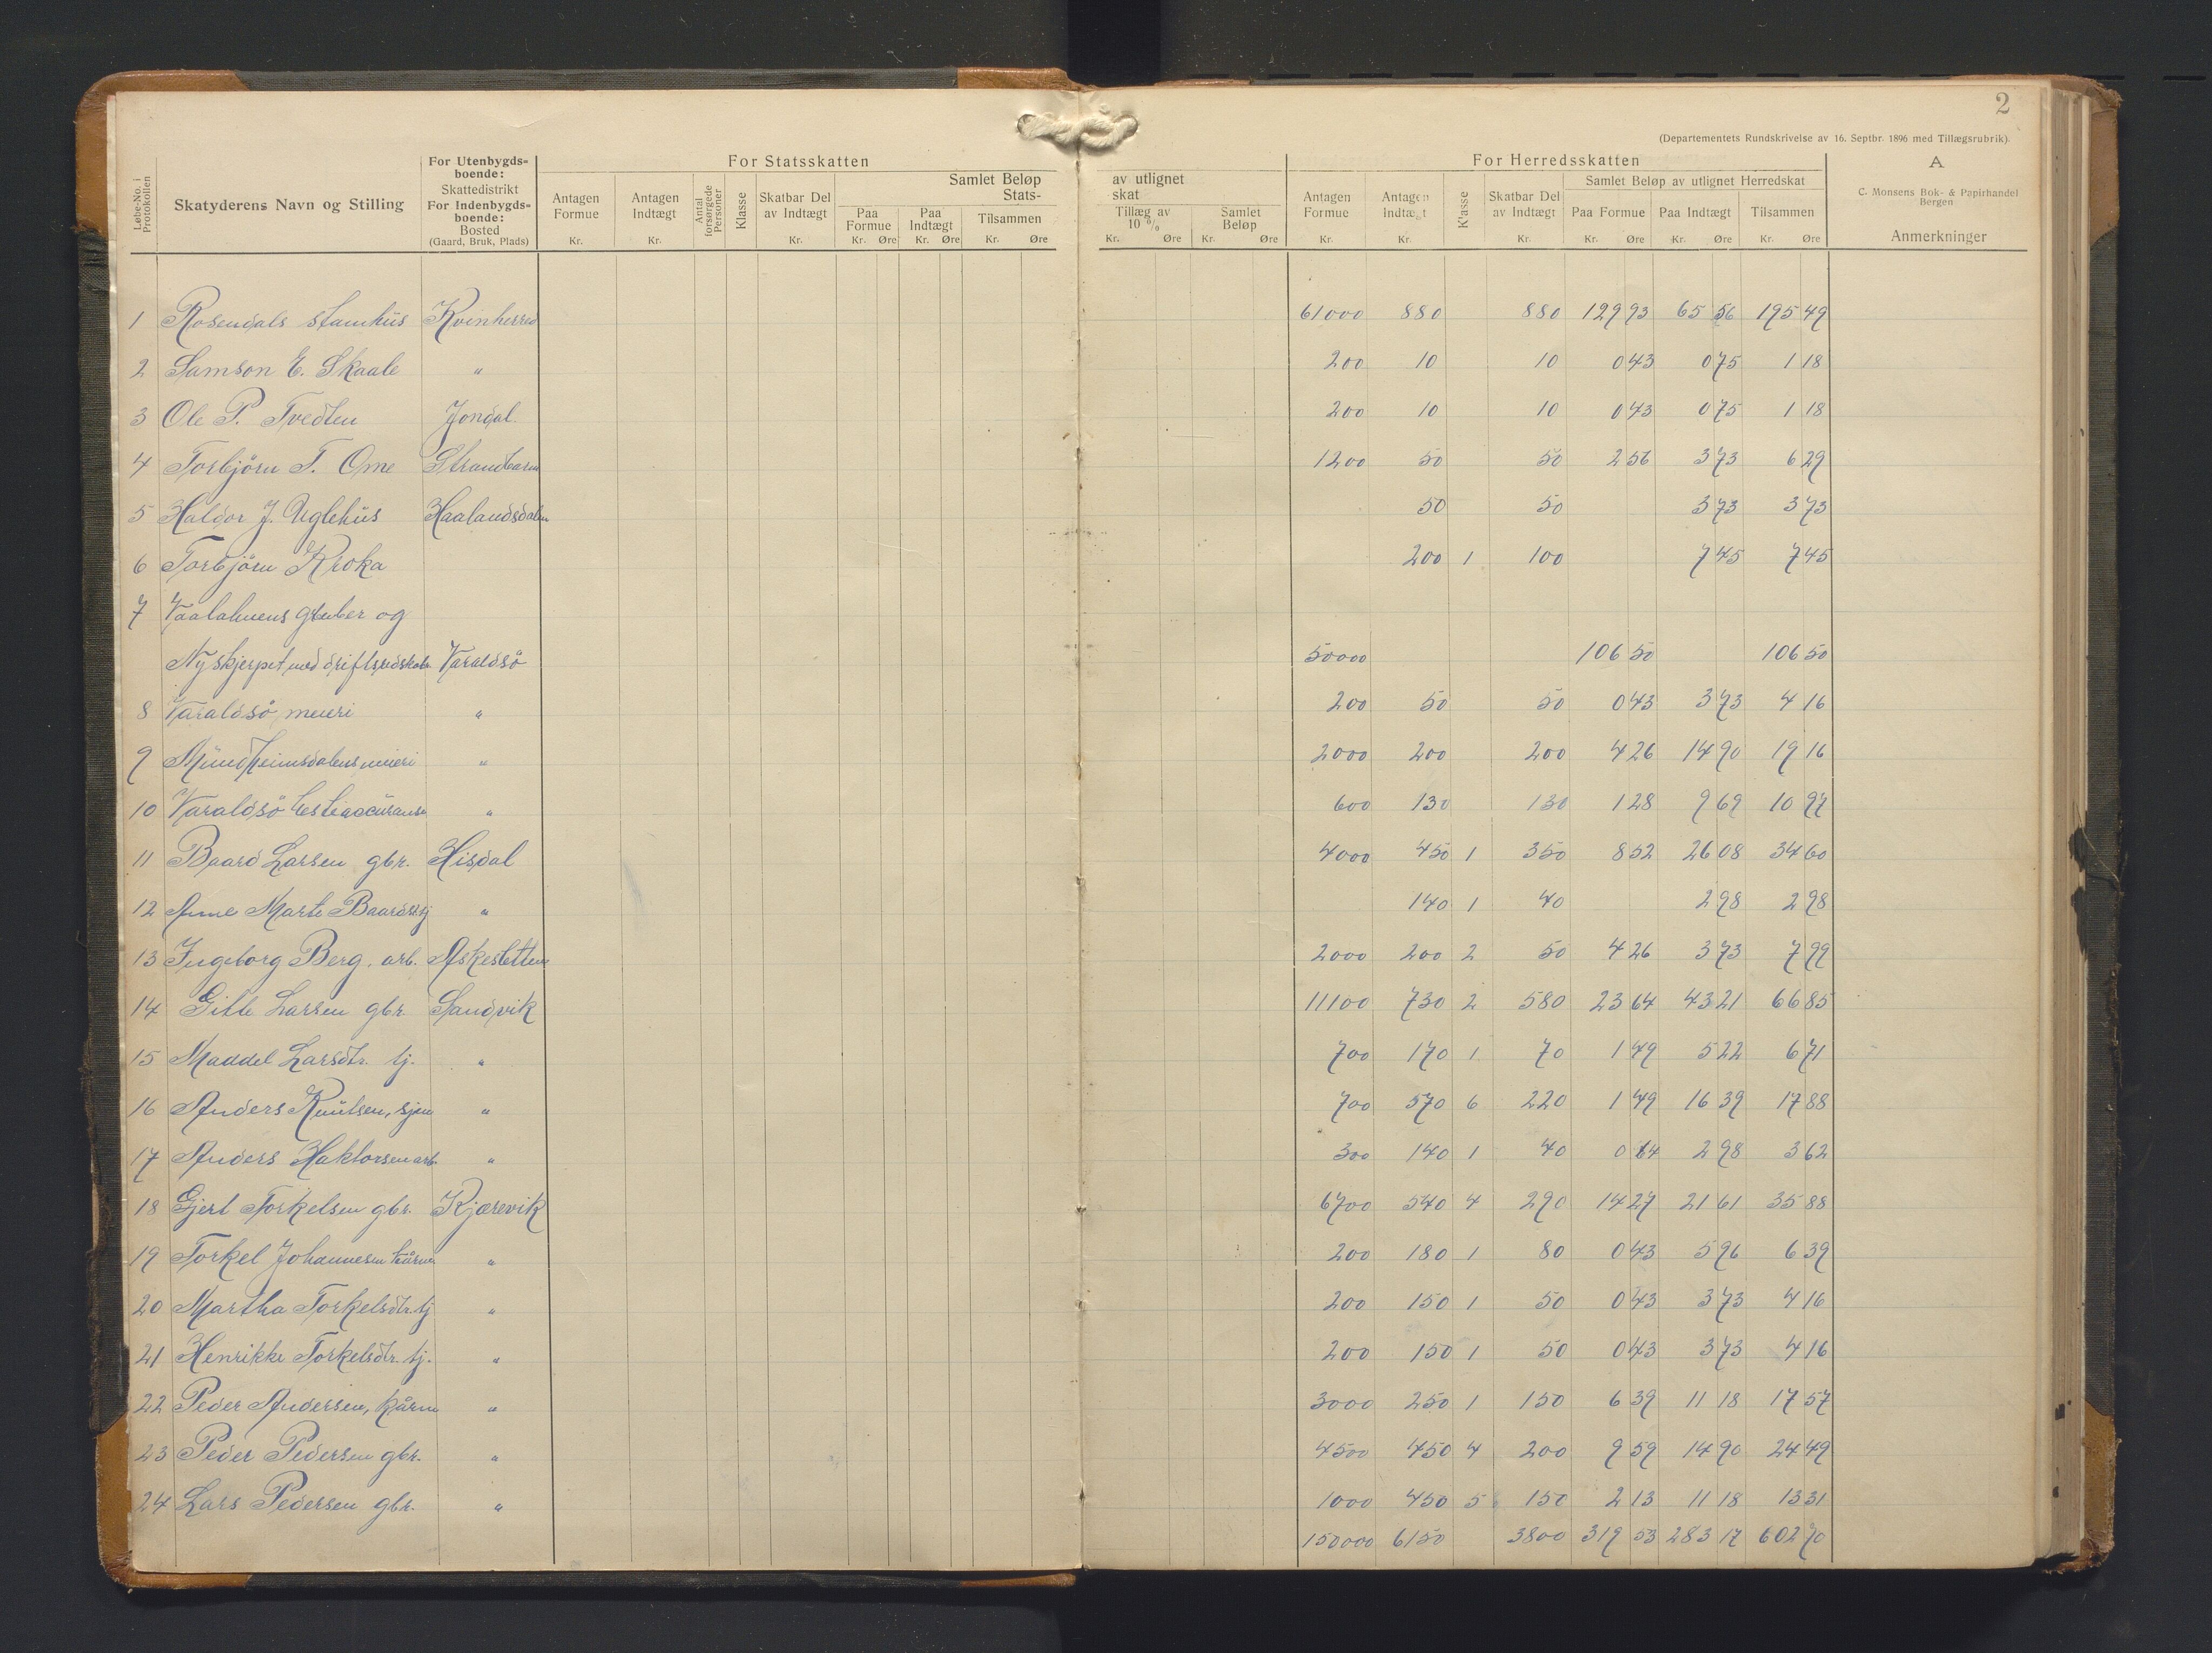 2
(Departementets Rundskrivelse av 16. Septbr. 1896 med Tillægsrubrik).
Løbe-No. i Protokollen
Skatyderens Navn og Stilling
For Utenbygds-boende:
Skattedistrikt
For Indenbygds-boende:
Bosted
(Gaard, Bruk, Plads)
For Statsskatten
Antagen Formue Kr.
Antagen Indtægt Kr.
Antal forsørgede Personer
Klasse
Skatbar Del av Indtægt Kr.
Samlet Beløp av utlignet Stats-skat
Paa Formue Kr. Øre
Paa Indtægt Kr. Øre
Tilsammen Kr. Øre
Tillæg av 10 % Kr. Øre
Samlet Beløp Kr. Øre
For Herredsskatten
Antagen Formue Kr.
Antagen Indtægt Kr.
Klasse
Skatbar Del av Indtægt Kr.
Samlet Beløp av utlignet Herredskat
Paa Formue Kr. Øre
Paa Indtægt Kr. Øre
Tilsammen Kr. Øre
A
C. Monsens Bok- & Papirhandel
Bergen
Anmerkninger
1 Rosendals stamhus Kvinherred 61000 880 880 129 93 65 56 195 49
2 Samson E. Skaale " 200 10 10 0 43 0 75 1 18
3 Ole P. Tvedten Jondal 200 10 10 0 43 0 75 1 18
4 Torbjörn T. Ome Strandbarm 1200 50 50 2 56 3 73 6 29
5 Haldor J. Uglehus Haalandsdalen 50 50 3 73 3 73
6 Torbjörn Kroka 200 1 100 7 45 7 45
7 gruber og
Nyskjerpet, med driftsredskab Varaldsö 50000 106 50 106 50
8 Varaldsö meieri " 200 50 50 0 43 3 73 4 16
9 Mundheimsdalens meieri " 2000 200 200 4 26 14 90 19 16
10 Varaldsö " 600 130 130 1 28 9 69 10 97
11 Baard Larsen gbr. Hisdal 4000 450 1 350 8 52 26 08 34 60
12 Anne Marte tj " 140 1 40 2 98 2 98
13 Ingeborg Berg, arb. 2000 200 2 50 4 26 3 73 7 99
14 Gitle Larsen gbr Sandvik 11100 730 2 580 23 64 43 21 66 85
15 Maddel Larsdtr. tj. " 700 170 1 70 1 49 5 22 6 71
16 Anders Knutsen, sjm " 700 570 6 220 1 49 16 39 17 88
17 Anders Haktorsen arb. " 300 140 1 40 0 64 2 98 3 62
18 Gjert Torkelsen gbr. Kjærevik 6700 540 4 290 14 27 21 61 35 88
19 Torkel Johannesen kårm " 200 180 1 80 0 43 5 96 6 39
20 Martha Torkelsdtr. tj " 200 150 1 50 0 43 3 73 4 16
21 Henrikke Torkelsdtr. tj. " 200 150 1 50 0 43 3 73 4 16
22 Peder Andersen, kårm " 3000 250 1 150 6 39 11 18 17 57
23 Peder Pedersen gbr. " 4500 450 4 200 9 59 14 90 24 49
24 Lars Pedersen gbr. " 1000 450 5 150 2 13 11 18 13 31
150000 6150 3800 319 53 283 17 602 70